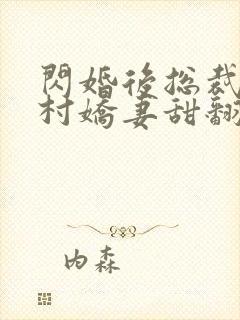 閃婚後總裁
村嬌妻甜翻
内森